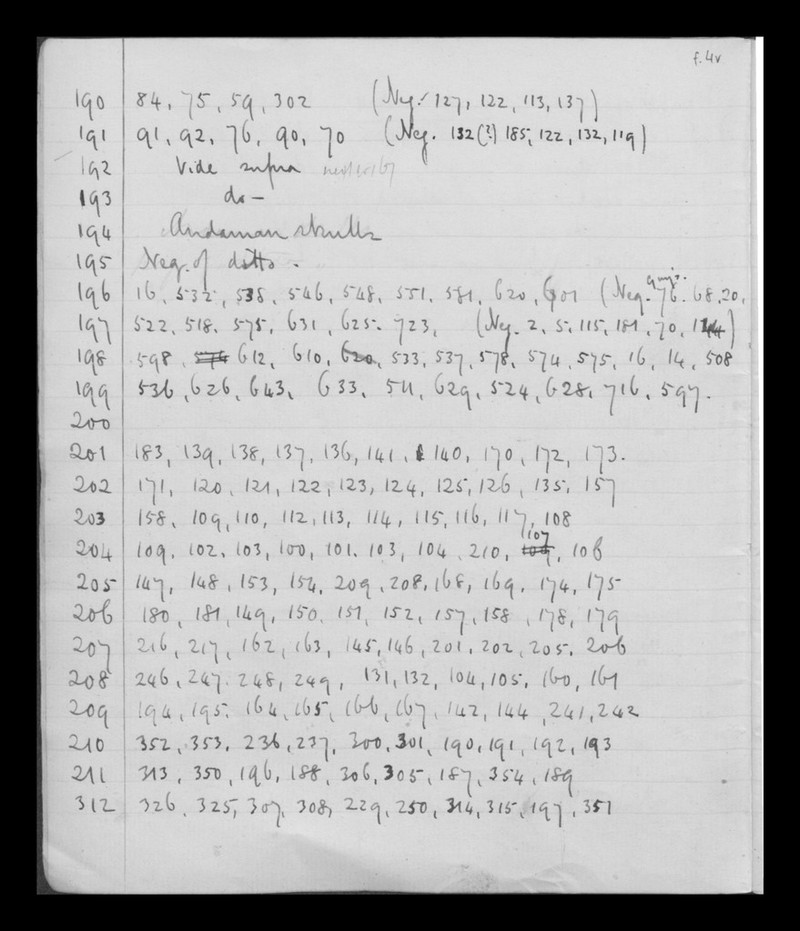 f. 4v
190 84, 75, 59, 302 (Neg. 127, 122, 113, 137)
191 91, 92, 76, 90, 70 (Neg. 132(?) 185, 122, 132, 119)
192 Vide supra
193 do —
194 Andaman skulls
195 Neg. of ditto.
196 16, 532, 538, 546, 548, 551, 581, 620, 601 (Neg. 76. 68, 20,
197 522, 518, 575, 631, 625. 723, (Neg. 2, 5, 115, 181, 70, 114)
198 598, 576 612, 610, 620, 533, 537, 578, 574, 575, 16, 14, 508
199 536, 626, 643, 633, 511, 629, 524, 628, 716, 597.
200
201 183, 139, 138, 137, 136, 141, 140, 170, 172, 173.
202 171, 120, 121, 122, 123, 124, 125, 126, 135, 157
203 158, 109, 110, 112, 113, 114, 115, 116, 117, 108
204 109, 102, 103, 100, 101. 103, 104, 210, 109 107, 106
205 147, 148, 153, 154, 209, 208, 168, 169, 174, 175
206 180, 181, 149, 150, 151, 152, 157, 158, 178, 179
207 216, 217, 162, 163, 145, 146, 201, 202, 205, 206
208 246, 247. 248, 249, 131, 132, 104, 105, 160, 161
209 194, 195, 164, 165, 166, 167, 142, 144, 241, 242
210 352, 353, 236, 237, 300, 301, 190, 191, 192, 193
211 313, 350, 196, 188, 306, 305, 187, 354, 189
312 326, 325, 307, 308, 229, 250, 314, 315, 197, 351